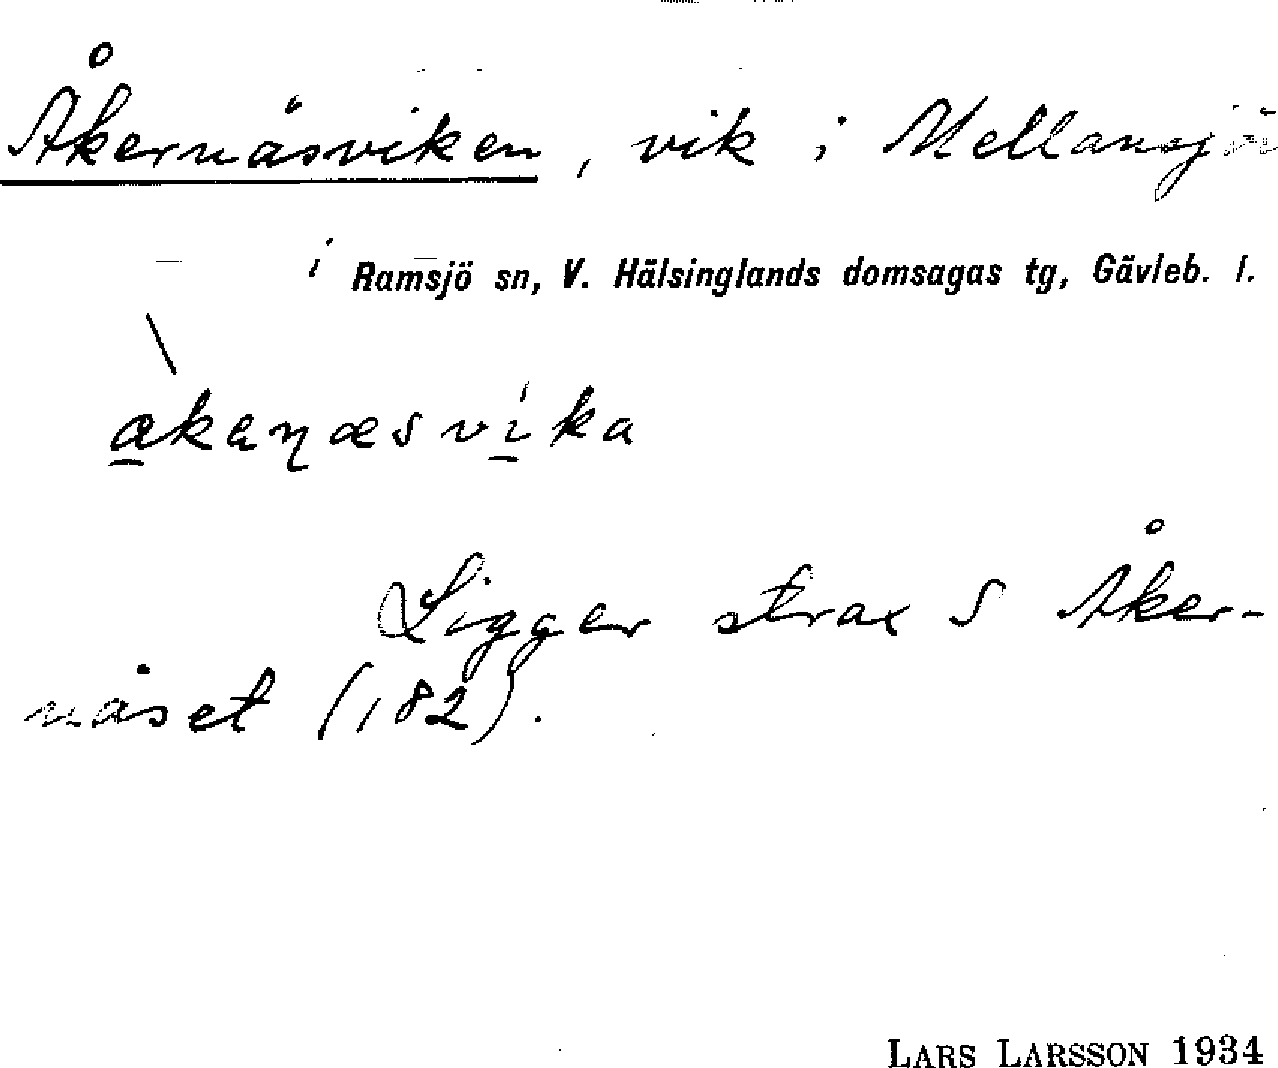 Åkernäsviken, vik i Mellansjön
i Ramsjö sn, V. Hälsinglands domsagas tg, Gävleb. l.
Ligger strax S Åker-
näset (182).
LARS LARSSON 1934